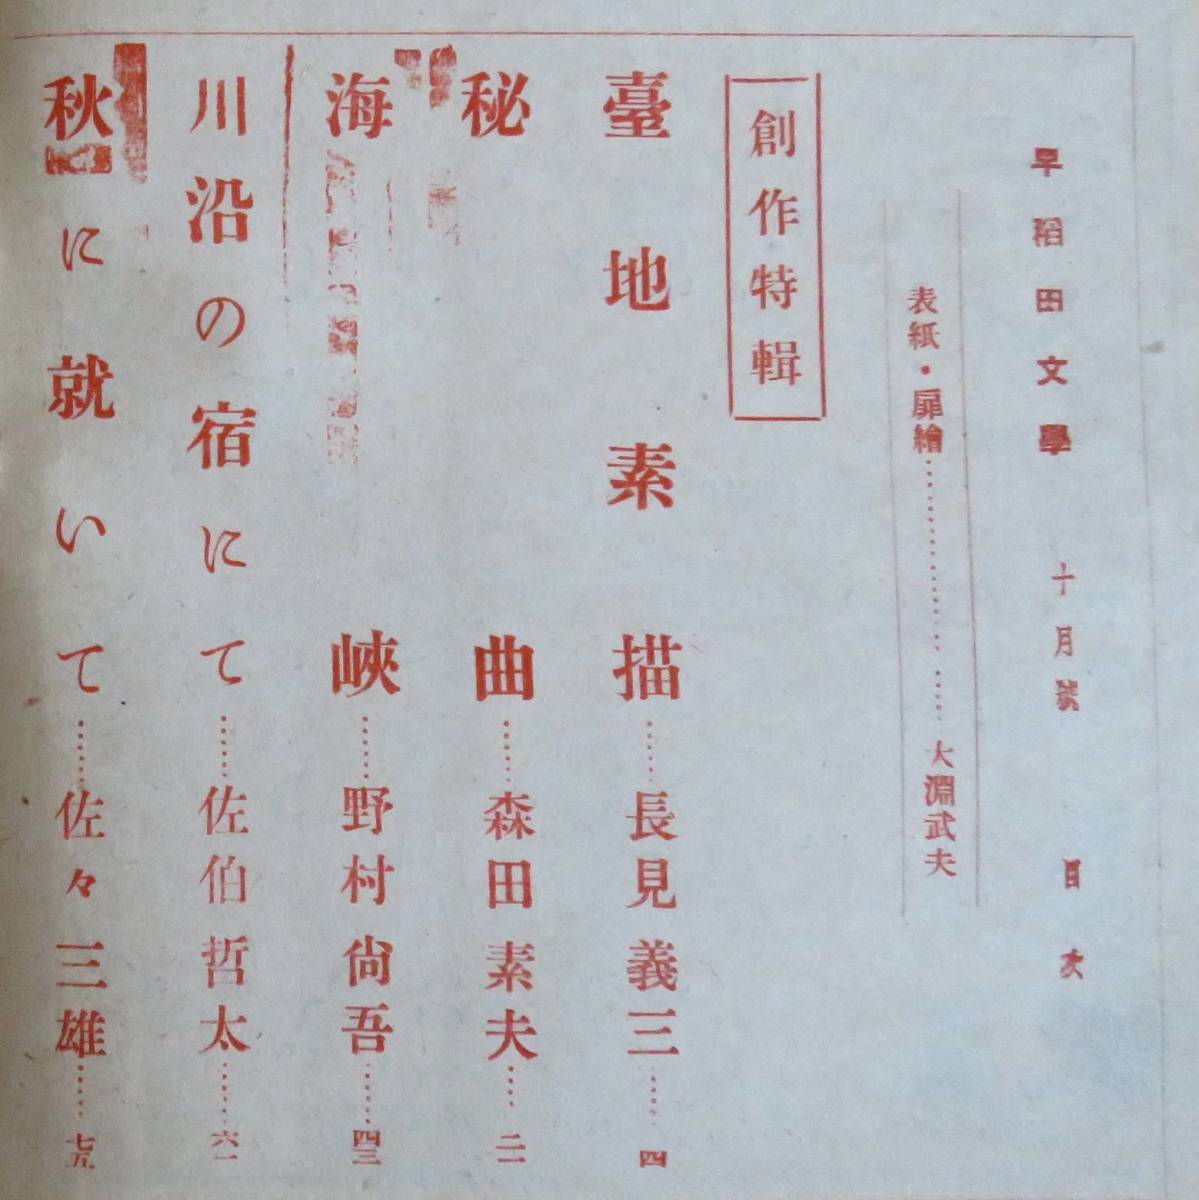 早稻田文學 十月號 目次
表紙・扉繪……………………大淵武夫
創作特輯
臺地素描……長見義三……四
秘曲……森田素夫……二一
海峽……野村尙吾……四三
川沿の宿にて……佐伯哲太……六一
秋に就いて……佐々三雄……七五